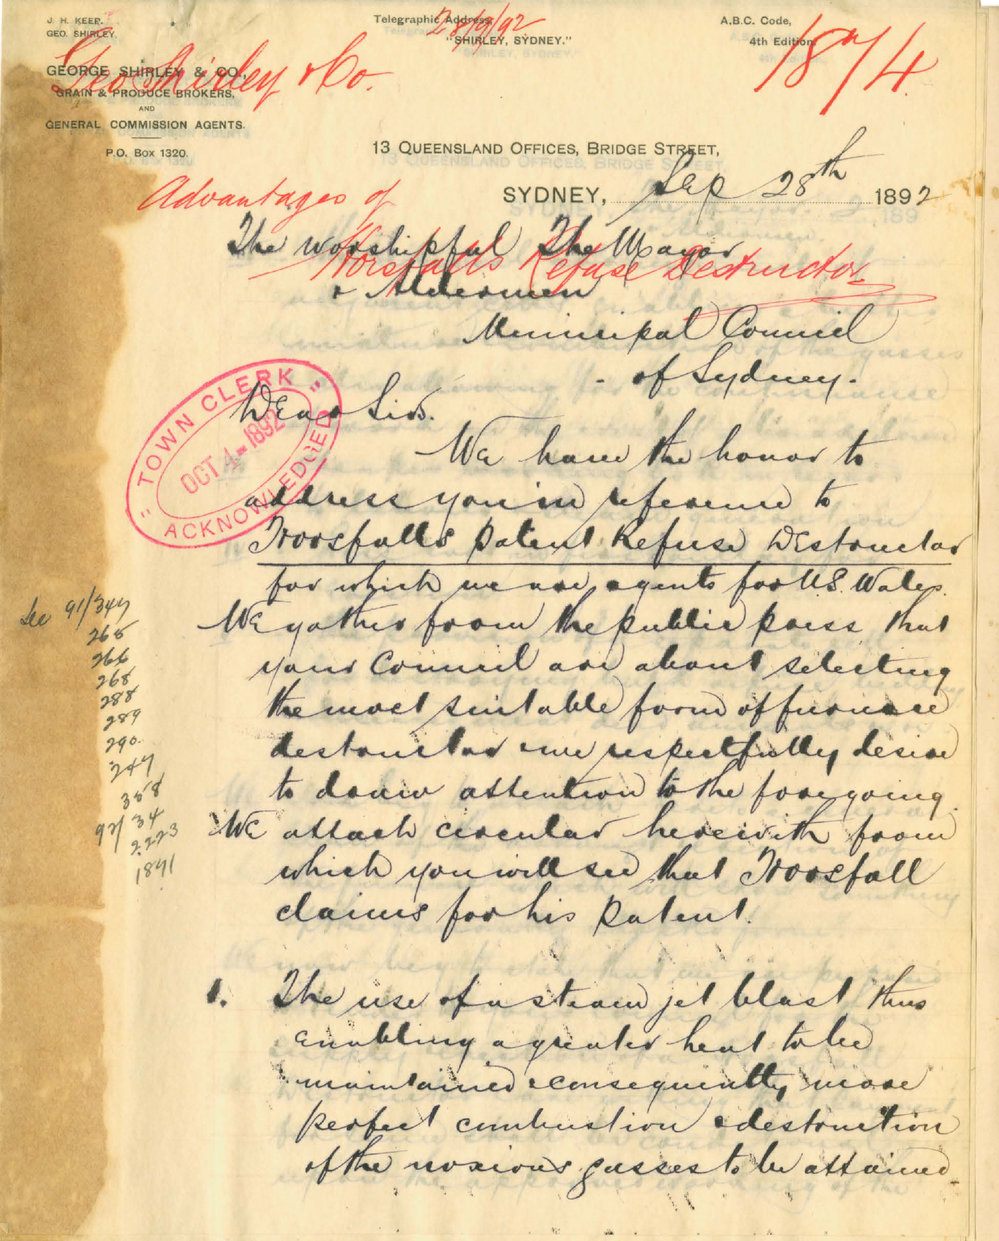 J. H. KEEP.
GEO. SHIRLEY.
Telegraphic Address,
"SHIRLEY, SYDNEY."
A.B.C. Code,
4th Edition
28/9/92
1874
Geo Shirley & Co.
GEORGE SHIRLEY & CO.,
GRAIN & PRODUCE BROKERS,
AND
GENERAL COMMISSION AGENTS.
P.O. Box 1320.
13 QUEENSLAND OFFICES, BRIDGE STREET,
SYDNEY, Sep 28th 1892
Advantages of
Horsfalls Refuse Destructor
The Worshipful The Mayor
& Aldermen
Municipal Council
of Sydney.
"TOWN CLERK"
OCT 4-1892
ACKNOWLEDGED
Dear Sirs.
We have the honor to
address you in reference to
Horsfalls Patent Refuse Destructor
for which we are agents for N.S. Wales.
We gather from the public press that
your Council are about selecting
the most suitable form of furnace
destructor & we respectfully desire
to draw attention to the foregoing.
We attach circular herewith from
which you will see that Horsfall
claims for his Patent.
1. The use of a steam jet blast thus
enabling a greater heat to be
maintained & consequently more
perfect combustion & destruction
of the noxious gasses to be attained
See 91/347
265
266
268
288
289
290.
347
358
92/34
2223
1891